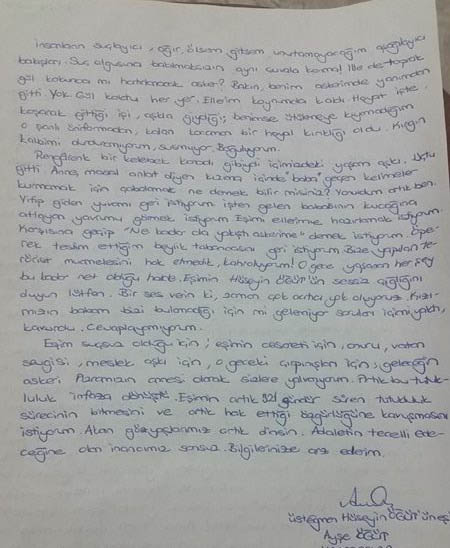 insanların suçlayıcı, ağır, ölsem, gitsem unutamayacağım aşağılayıcı
bakışları. Suç olgusuna bakılmaksızın aynı çuvala koyma! İlle de toprak
gül kokunca mı hatırlanacak asker? Bakın, benim askerimde yanımdan
gitti. Yok Gül koktu her yer. Ellerim koynumda kaldı. Hayat işte.
koşarak gittiği işi, aşkla giydiği; benimse ütülemeye kıyamadığım
o şanlı üniformadan, kalan kocaman bir hayal kırıklığı oldu. Kırgın
kalbimi durduramıyorum, susmuyor. Boğuluyorum.
Rengarenk bir kelebek kanadı gibiydi içimizdeki yaşam aşkı. Uçtu
gitti. Anne, masal anlat diyen kızıma içinde "baba" geçen kelimeler
kurmamak için çabalamak ne demek bilir misiniz? Yoruldum artık ben.
Yitip giden yuvamı geri istiyorum işten gelen babasının kucağına
atlayan yavrumu görmek istiyorum Eşimi ellerimle hazırlamak istiyorum.
Karşısına geçip "Ne kadar da yakıştı askerime" demek istiyorum. Öpe-
rek teslim ettiğim beylik tabancasını geri istiyorum. Bize yapılan te-
rörist muamelesini hak etmedik, kahroluyorum! O gece yaşanan her şey
bu kadar net olduğu halde. Eşimin Hüseyin ÖĞÜT'ün sessiz çığlığını
duyun lütfen. Bir ses verin ki, zaman çok acıtıyor, yok oluyoruz. Kızı-
mızın babam bizi bulamadığı için mi gelemiyor soruları içimi yaktı,
kavurdu. Cevaplayamıyorum.
Eşim suçsuz olduğu için; eşimin cesareti için, onuru, vatan
sevgisi, meslek aşkı için, o geceki çırpınışları için; geleceğin
askeri Paramızın annesi olarak sizlere yalvarıyorum. Artık bu tutuk-
luluk infaza dönüştü. Eşimin artık 321 gündür süren tutukluluk
sürecinin bitmesini ve artık hak ettiği özgürlüğüne kavuşmasını
istiyorum. Akan gözyaşlarımız artık dinsin. Adaletin tecelli ede-
ceğine olan inancımız sonsuz. Bilgilerinize arz ederim.
üsteğmen Hüseyin ÖĞÜT'ün eşi
Ayşe ÖĞÜT